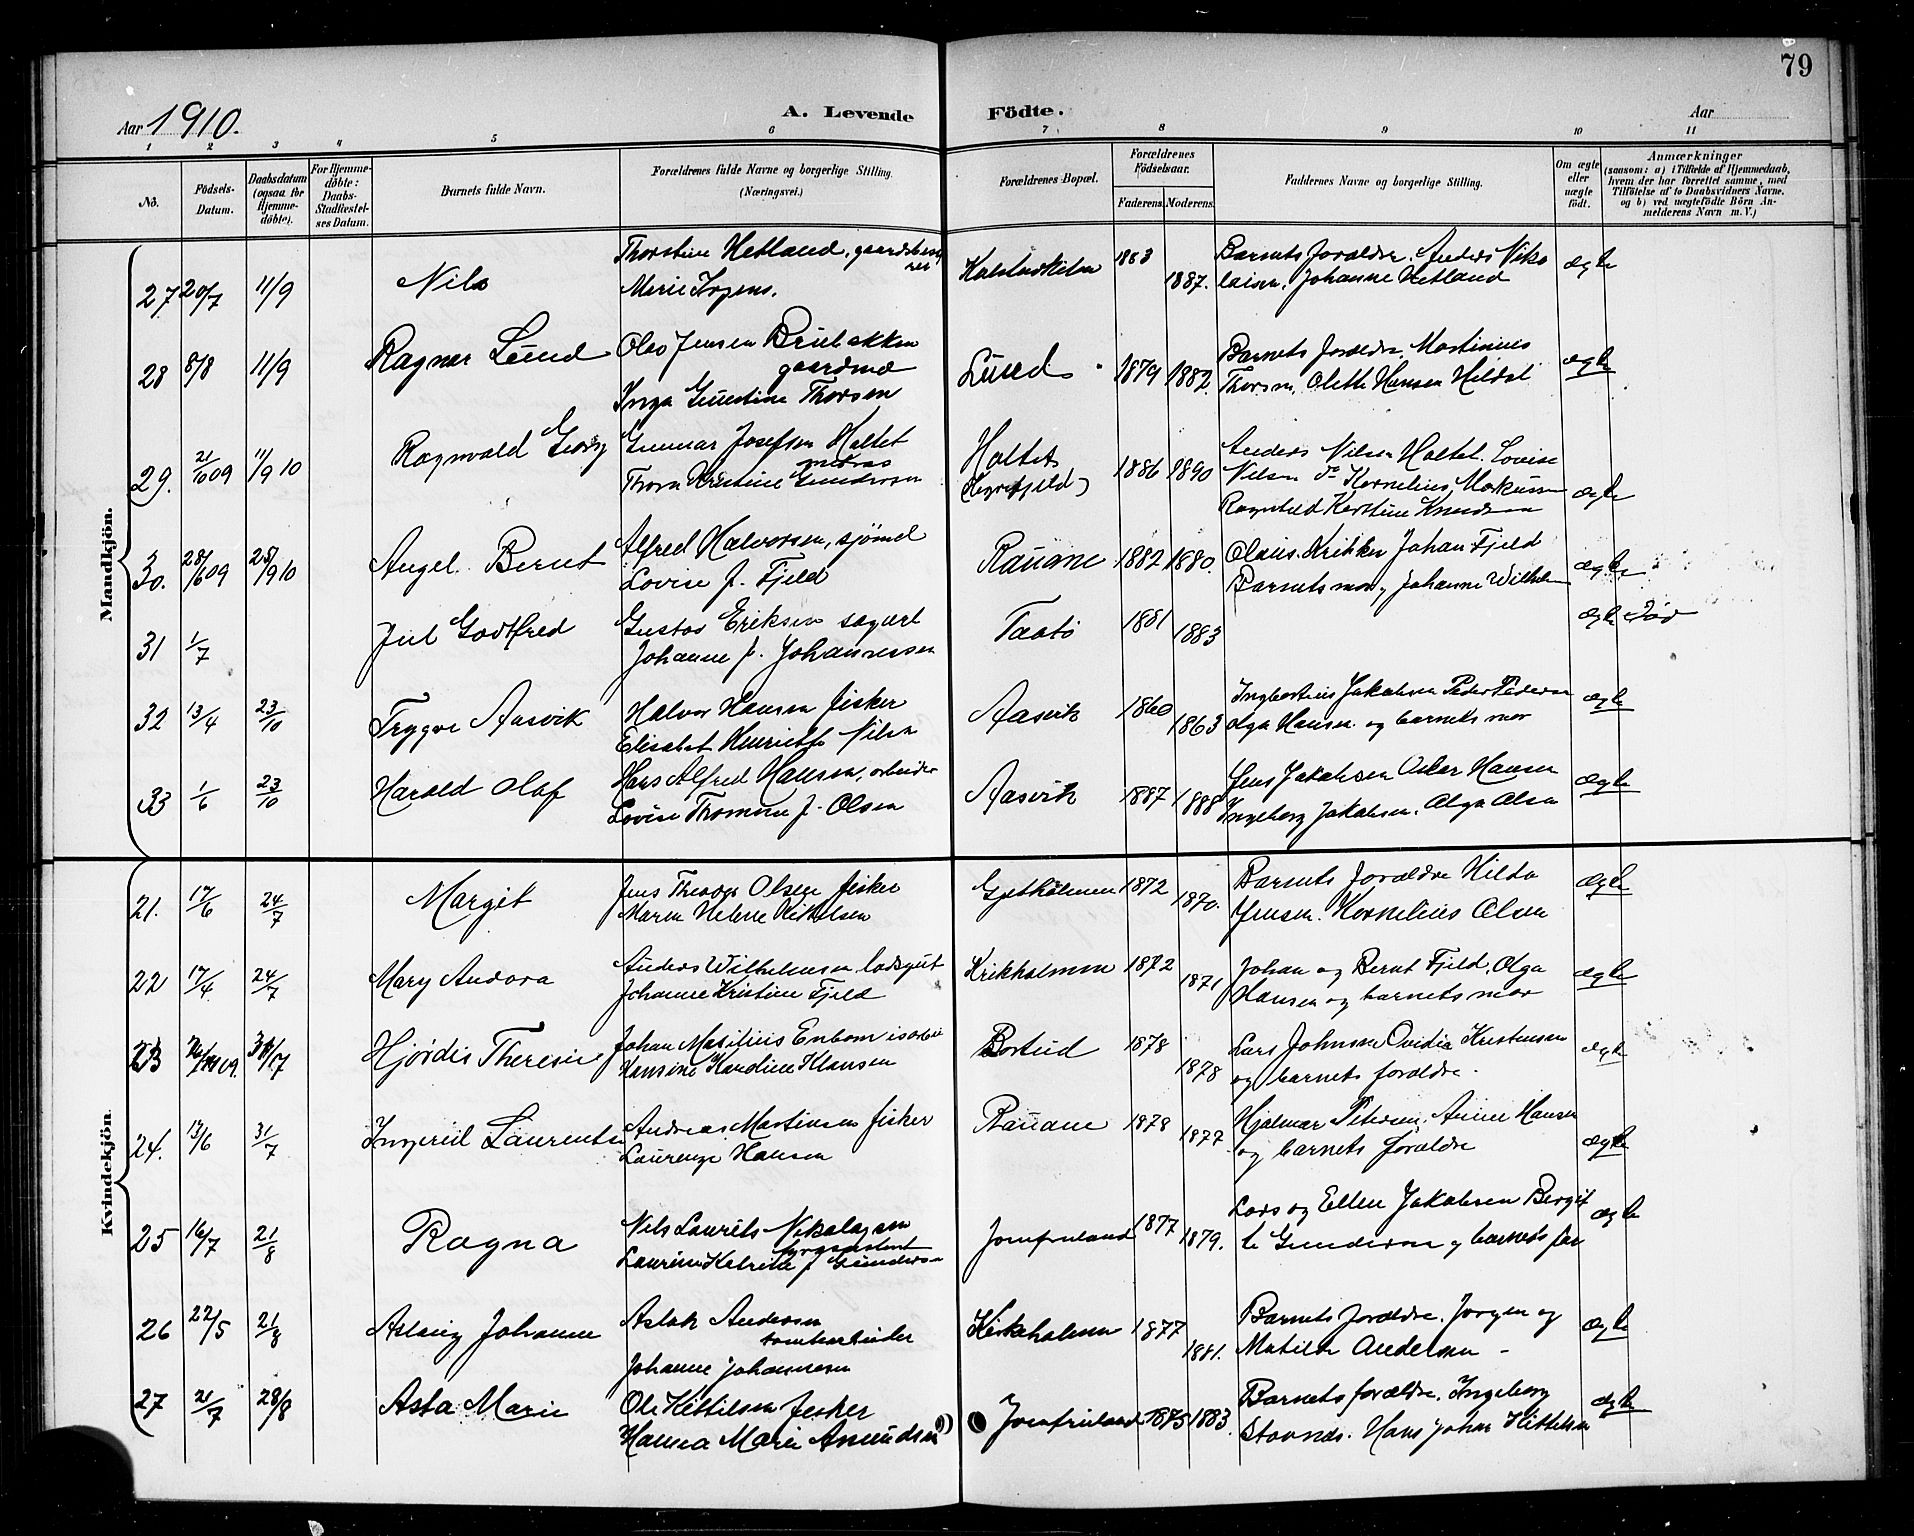 79
Aar 1910.
A. Levende Födte.
Aar
1 2 3 4 5 6 7 8 9 10 11
No.
Födsels-Datum.
Daabsdatum (ogsaa for Hjemme-döbte).
For Hjemme-döbte: Daabs-Stadfæstel-ses Datum.
Barnets fulde Navn.
Forældrenes fulde Navne og borgerlige Stilling.
(Næringsvei.)
Forældrenes Bopæl.
Forældrenes Födselsaar.
Faderens. Moderens.
Faddernes Navne og borgerlige Stilling.
Om ægte eller uægte födt.
Anmærkninger
(saasom: a) i Tilfælde af Hjemmedaab,
hvem der har forrettet samme, med
Tilföielse af to Daabsvidners Navne.
og b) ved uægtefödte Börn An-
melderens Navn m. V.)
Mandkjön.
27 20/7 11/9 Nils
Thorstein Hetland, gaardbruger
Marie Jrgens.
1883 1887.
Barnets forældre. Anders Niko
laisen. Johanne Hetland
ægte
28 8/8 11/9 Ragnar Lund
Olav Jensen Brubakken
gaardmd
Inga Gunstine Thorsen
Lund 1879 1882.
Barnets forældre. Martinius
Thorsen, Olette Hansen Hildal
ægte
29. 21/10 09 11/9 10 Ragnvald Georg
Gunnar Josefsen Holtet
Thora Kristine Gundersen
Holtet
1886 1890
Anders Nilsen Holtet. Lovise
Nilsen do Kornelius Markussen
Ragnhild Kirstine Knudsen
ægte
30. 28/10 09 25/9 10 Angel Bernt
Alfred Halvorsen, sjømd
Lovise J. Fjeld
Rauane 1882 1880.
Olaus Krikken Johan Fjeld
Barnets mor, Johanne Wilhelm
ægte
31 1/7 Jul Godtfred
Gustav Eriksen sagarb
Johanne J. Johannessen
Taatø 1881 1883
ægte
32 13/4 23/10 Trygve Aasvik
Halvor Hansen fisker
Elisabet Henriette Nilsen
Aasvik 1860 1863
Ingbortius Jakobsen Peder Pedersen
Olga Hansen og barnets mor
ægte
33 1/6 23/10 Harald Olaf
Hans Alfred Hansen, arbeider
Lovise Thomine J. Olsen
Aasvik 1887 1888
Jens Jakobsen Oskar Hansen
Ingeborg Jakobsen. Olga Olsen
ægte
Kvindekjön.
21. 17/6 24/7 Margit
Jens Theodor Olsen fisker
Maren Helene Kittelsen
Gjetholmen 1872 1870.
Barnets forældre Hilda
Jensen. Kornelius Olsen
ægte
22 17/4 24/7 Mary Andora
Anders Wilhelmsen, losgut
Johanne Kristine Fjeld
Krikholmen 1872 1871
Johan og Bernt Fjeld, Olga
Hansen og barnets mor
ægte
23 31/7 Hjørdis Theresie
Johan Masilius Enbom
Hansine Karoline Klausen
1878 1878
Lars Johnsen Ovidia Kristensen
og barnets forældre.
ægte
24. 13/6 31/7 Ingerid Laurentse
Andreas Martinsen fisker
Laurenze Hansen
Rauane 1878 1877
Hjalmar Petersen, Anne Hansen
og barnets forældre
ægte
25 16/7 21/8 Ragna
Nils Laurits Nikolaysen
fyrassistent
Laurine Katrine J. Gundersen
Jomfruland 1877 1879.
Lars og Ellen Jakobsen Bergit
te Gundersen og barnets far
ægte
26 22/5 21/8 Aslaug Johanne
Aslak Andersen
tomtearbeider
Johanne Johannesen
Kirkeholmen 1877 1881.
Barnets forældre. Jørgen og
Matilde Andersen
ægte
27 21/7 28/8 Asta Marie
Ole Kittilsen fisker
Hanna Marie Amundsen
Jomfruland 1875 1883.
Barnets forældre. Ingeborg
Stavnes. Hans Johan Kittelsen
ægte